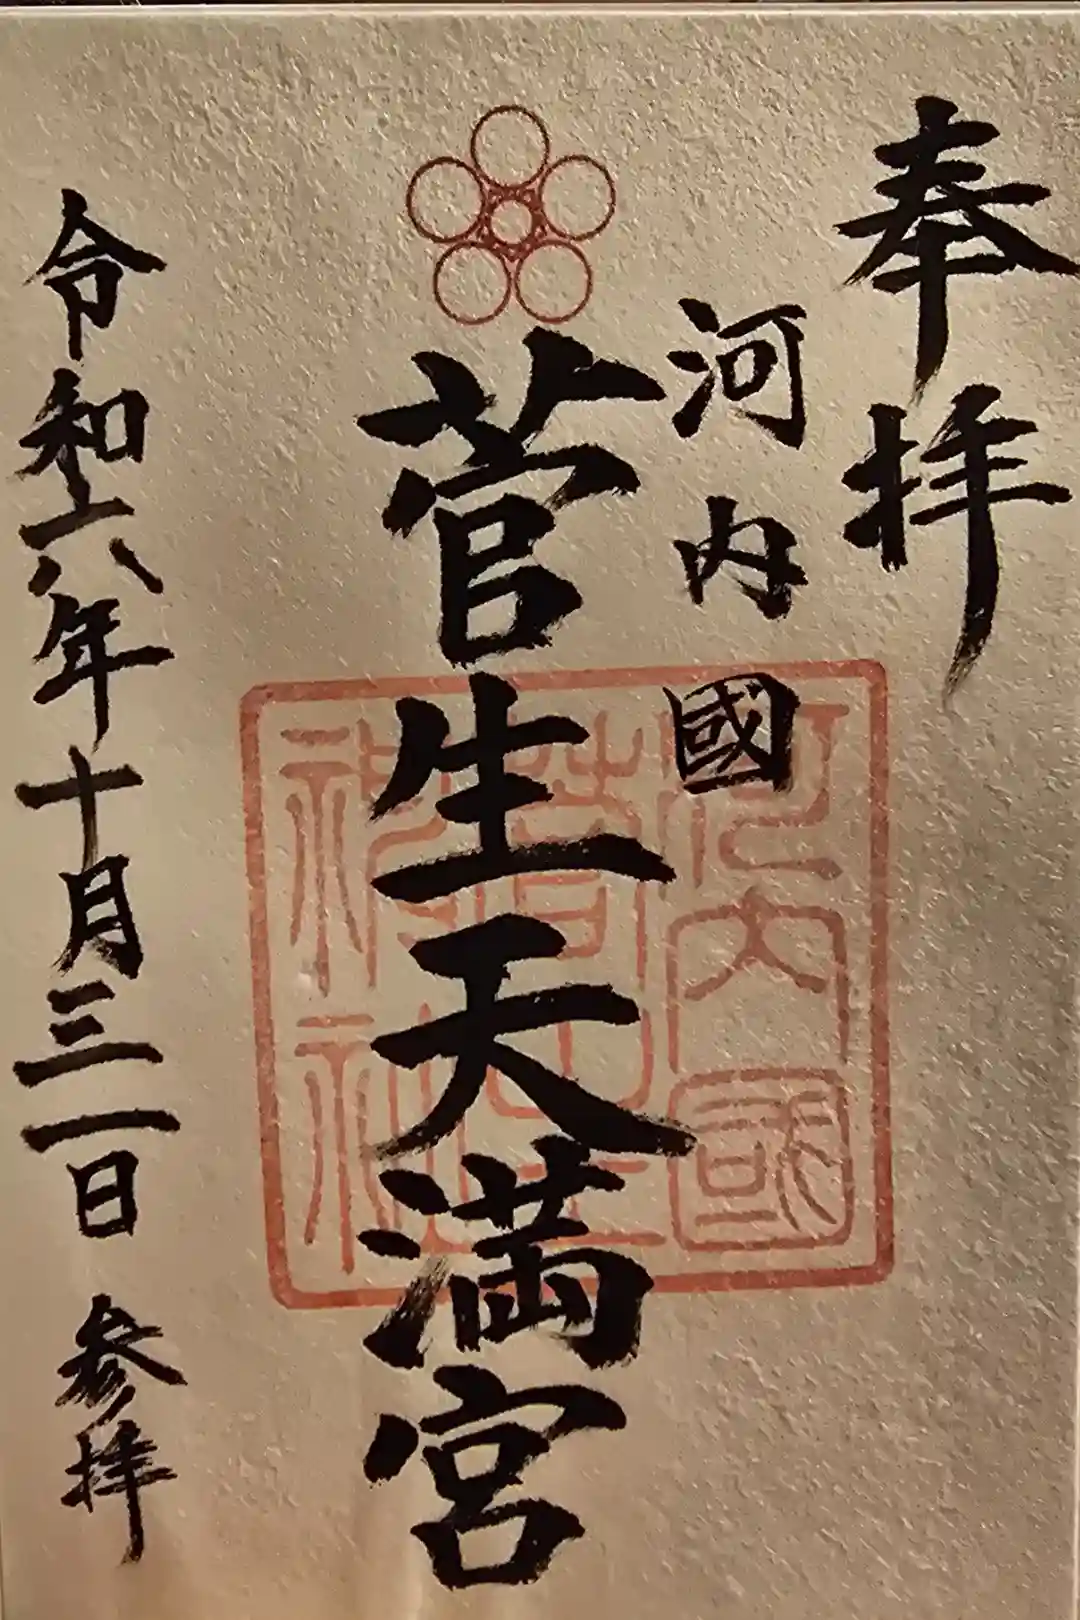 奉拝
河内國
菅生天満宮
令和六年十月三一日 参拝
河内國
菅生
神社